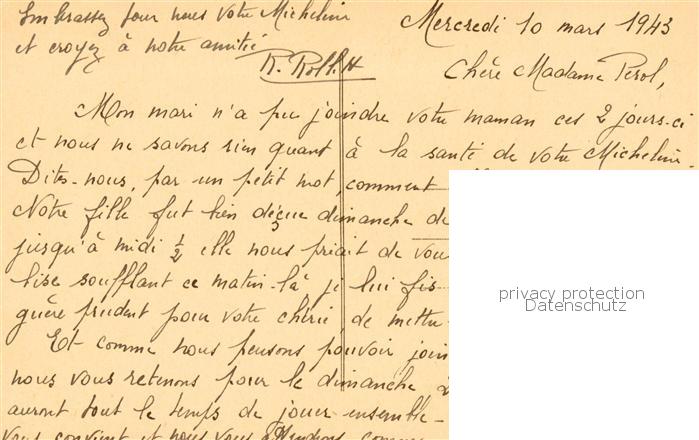 Embrassez pour nous votre Micheline
et croyez à notre amitié
Mercredi 10 mars 1943
Chère Madame Perol,
Mon mari n'a pu joindre votre maman ces 2 jours-ci
et nous ne savons rien quant à la santé de votre Micheline.
Dites-nous, par un petit mot, comment
Notre fille fut bien déçue dimanche de
jusqu'à midi ½ elle nous priait de vou
bise soufflant ce matin-là je lui fis
guère prudent pour votre chérie, de mettre
Et comme nous pensons pouvoir join
nous vous retenons pour le dimanche
auront tout le temps de jouer ensemble-
vous convient et nous vous attendrons comme
privacy protection
Datenschutz